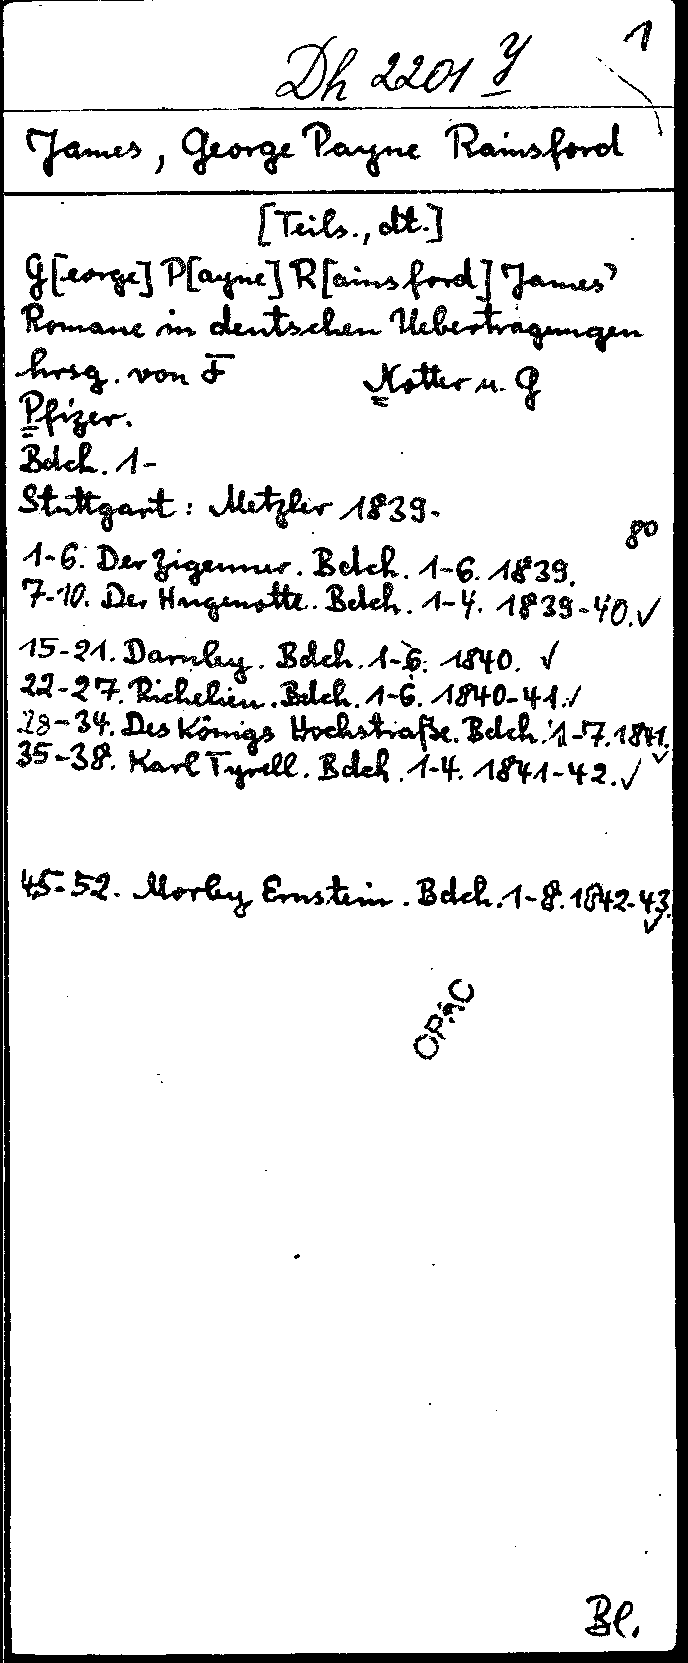 1
Dh 2201 y
James, George Payne Rainsford
[Teils., dt.]
G[eorge] P[ayne] R[ainsford] James'
Romane in deutschen Uebertragungen
hrsg. von F Notter u. G
Pfizer.
Bdch. 1-
Stuttgart: Metzler 1839-
8°
1-6. Der Zigeuner. Bdch. 1-6. 1839.
7-10. Der Hugenotte. Bdch. 1-4. 1839-40. ✓
15-21. Darnley. Bdch. 1-6. 1840. ✓
22-27. Richelieu. Bdch. 1-6. 1840-41. ✓
28-34. Des Königs Hochstraße. Bdch. 1-7. 1841. ✓
35-38. Karl Tyrell. Bdch. 1-4. 1841-42. ✓
45-52. Morley Ernstein. Bdch. 1-8. 1842-43. ✓
OPAC
Bl.